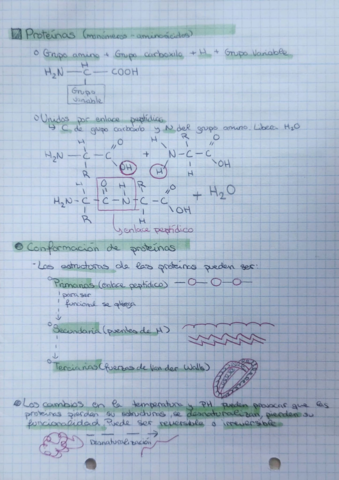 Proteínas (monómeros - aminoácidos)
Grupo amino + Grupo carboxilo + H + Grupo variable
H
H₂N — C — COOH
Grupo variable
Unidos por enlace peptídico
C de grupo carboxilo y N del grupo amino. Libera H₂O
H H R
H₂N — C — C O OH + N — C — C O OH
R H H
H O H R
H₂N — C — C — N — C — C O OH + H₂O
R H
enlace peptídico
Conformación de proteínas
- Las estructuras de las proteínas pueden ser:
Primarias (enlace peptídico)
para ser
funcional se pliega
Secundaria (puentes de H)
Terciarias (fuerzas de Van der Walls)
Los cambios en la temperatura y PH pueden provocar que las
proteínas pierdan su estructura, se desnaturalizan, pierden su
funcionalidad. Puede ser reversible o irreversible.
Desnaturalización